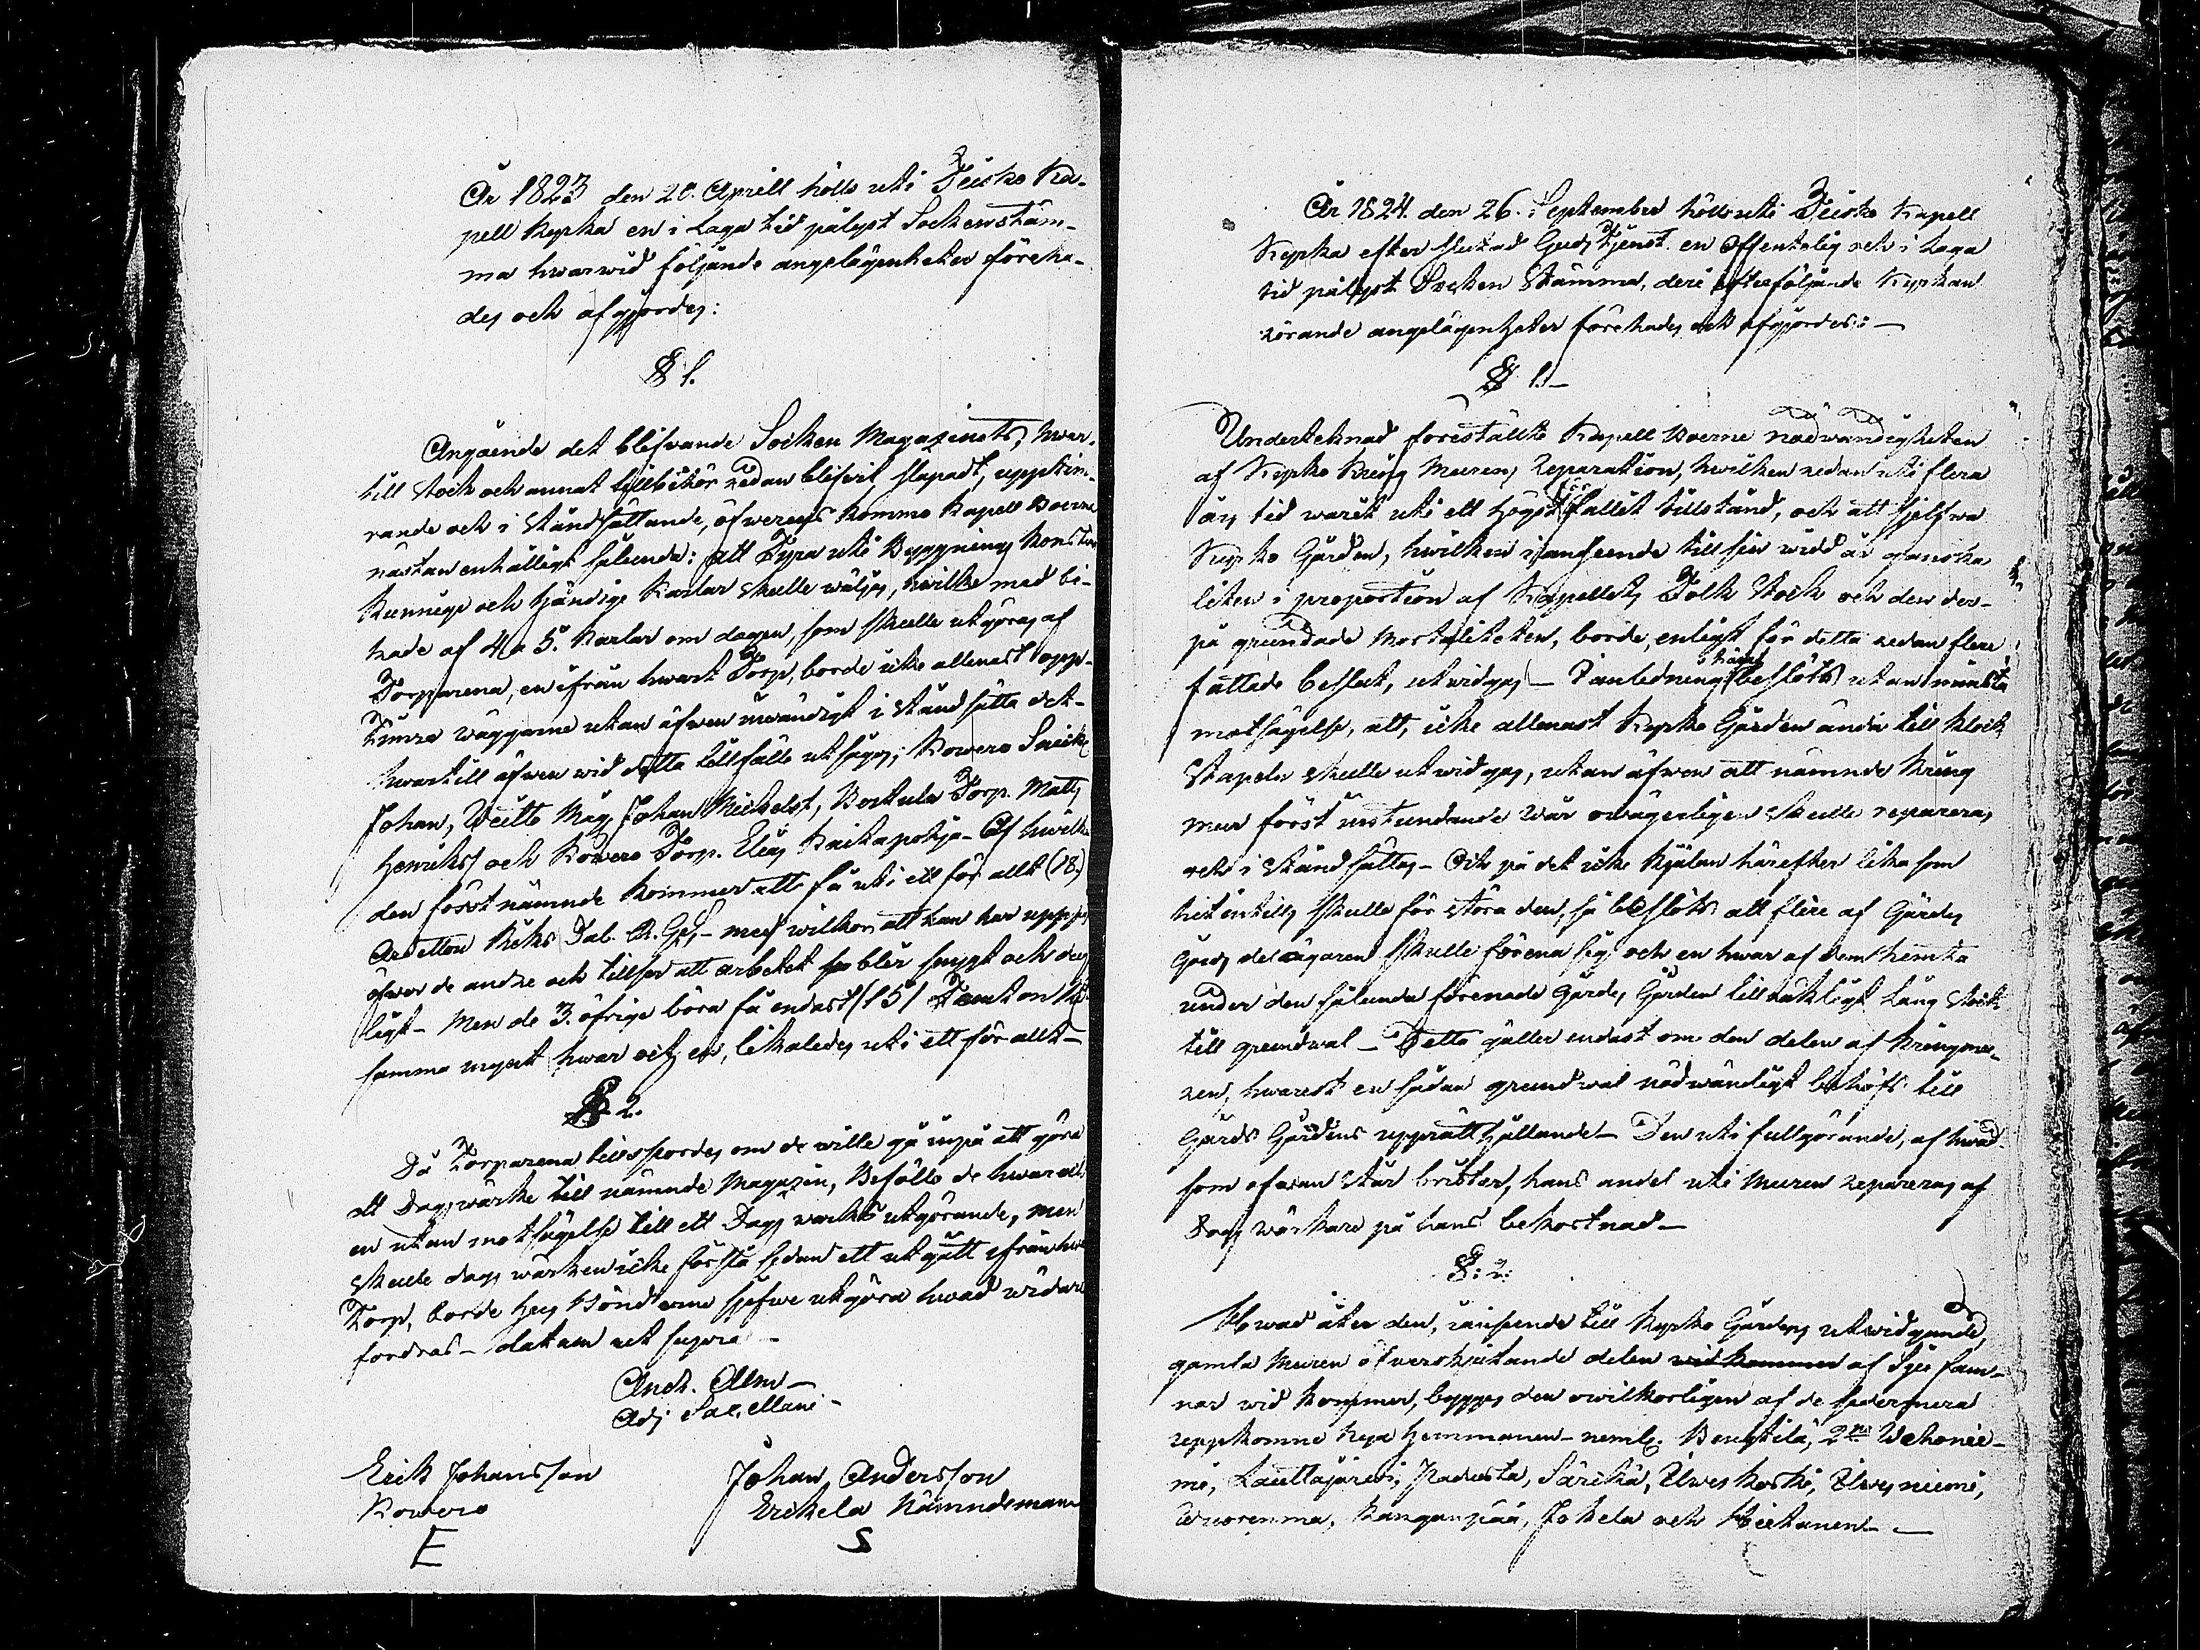 År 1823 den 20. Aprill hölls uti Teisko Ka-
pell Kyrka en i Laga tid pålyst Sockenstäm-
ma hwarwid följande angelägenheter föreha-
des och afgjordes:
§ 1.
Angående det blifvande Socken Magazinets, hwar-
till stock och annat tillbehör redan blifvit skapadt, upptim-
rande och i ståndsättande, öfverens kommo Kapell Boerne
nästan enhälligt sålunda: att Fyra uti Byggnings konsten
kunnige och händige Karlar skulle wäljas, hwilka med bi-
träde af 4 a 5. Karlar om dagen, som skulle utgöras af
Torparena, en ifrån hwart Torp, borde icke allenast upp-
timra wäggarne utan äfwen inwändigt i stånd sätta det-
hwartill äfwen wid detta tillfälle utsågs; Kowero
Johan, Weitto Måg Johan Michelss, Torp. Matts
Henrikss och Kowero Torp. Elias - Af hwilka
den förstnämnde kommer att få uti ett för allt (18.)
Aderton Riks Dal. R. Gs. - med wilkor att han har uppsigt
öfver de andre och tillser att arbetet blir snygt och dug-
ligt - Men de 3. öfrige böra få endast (15) Femton
samma mynt hwar och en, likaledes uti ett för allt -
§ 2.
Då Torparena tillspordes om de wille gå in på att göra
ett Dagswärke till nämnde Magazin, Beföllo de hwar och
en utan motsägelse till ett Dags wärks utgörande, men
skulle dags wärken icke förslå sedan ett utgått ifrån hwart
Torp, borde Hrs Bönderne sjelfwe utgöra hwad widare
fordras - datum ut supra -
And. Alm -
Adj. Sacellani -
Erik Johansson
Kowero
E
Johan Andersson
Erickela Nämndeman
S
År 1824. den 26. September hölls uti Teisko Kapell
Kyrka efter slutad Guds Tjenst en offentelig och i Laga
tid pålyst Socken Stämma, deri efterföljande Kyrkan
rörande angelägenheter förehades och afgjordes: -
§ 1. -
Undertecknad förestälte Kapell Boerne nödwändigheten
af Kyrko Kring Murens Reparation, hwilken redan uti flera
års tid warit uti ett högst förfallit tillstånd, och att sjelfwa
Kyrko Gården, hwilken i anseende till sin widd är ganska
liten i proportion af Kapellets Folk Stock och den der-
på grundade Mortaliteten, borde, enligt för detta redan flere
fattade beslut, utwidgas - I anledning häraf beslöts utan minsta
motsägelse, att, icke allenast Kyrko Gården ända till Klock
Stapeln skulle utwidgas, utan äfwen att nämnde Kring
mur först instundande wår skulle reparera,
och i stånd sättas - Och på det icke Kjälan härefter lika som
hitintills skulle för störa den, så beslöts att flere af Gårds
Gårds delägaren skulle förena sig och en hwar af dem hemta
under den sålunda förenade Gärds Gården tillräkligt lång stock
till grundwal - Detta gäller endast om den delen af Kringmu-
ren, hwarest en sådan grundwal nödwändigt behöfs till
Gärds Gårdens upprätthållande - Den uti fullgörande, af hwad
som ofwan står brister, hans andel uti Muren repareras af
Dags wärkare på hans bekostnad -
§: 2:
Hwad åter den, i anseende till Kyrko Gårdens utwidgande,
gamla Muren öfverskjutande delen wid kommer af Sju fam-
nar wid kommer, bygges den owilkorligen af de sedermera
uppkomne nya Hemmanen - neml. Bengtilä, 2ne Wehonie-
mi, Lauttajärwi, Padusta, Särikä, Ulweskoski, Ulwesniemi,
Wuorenma, Kanganpää, Jokela och Hietanen -